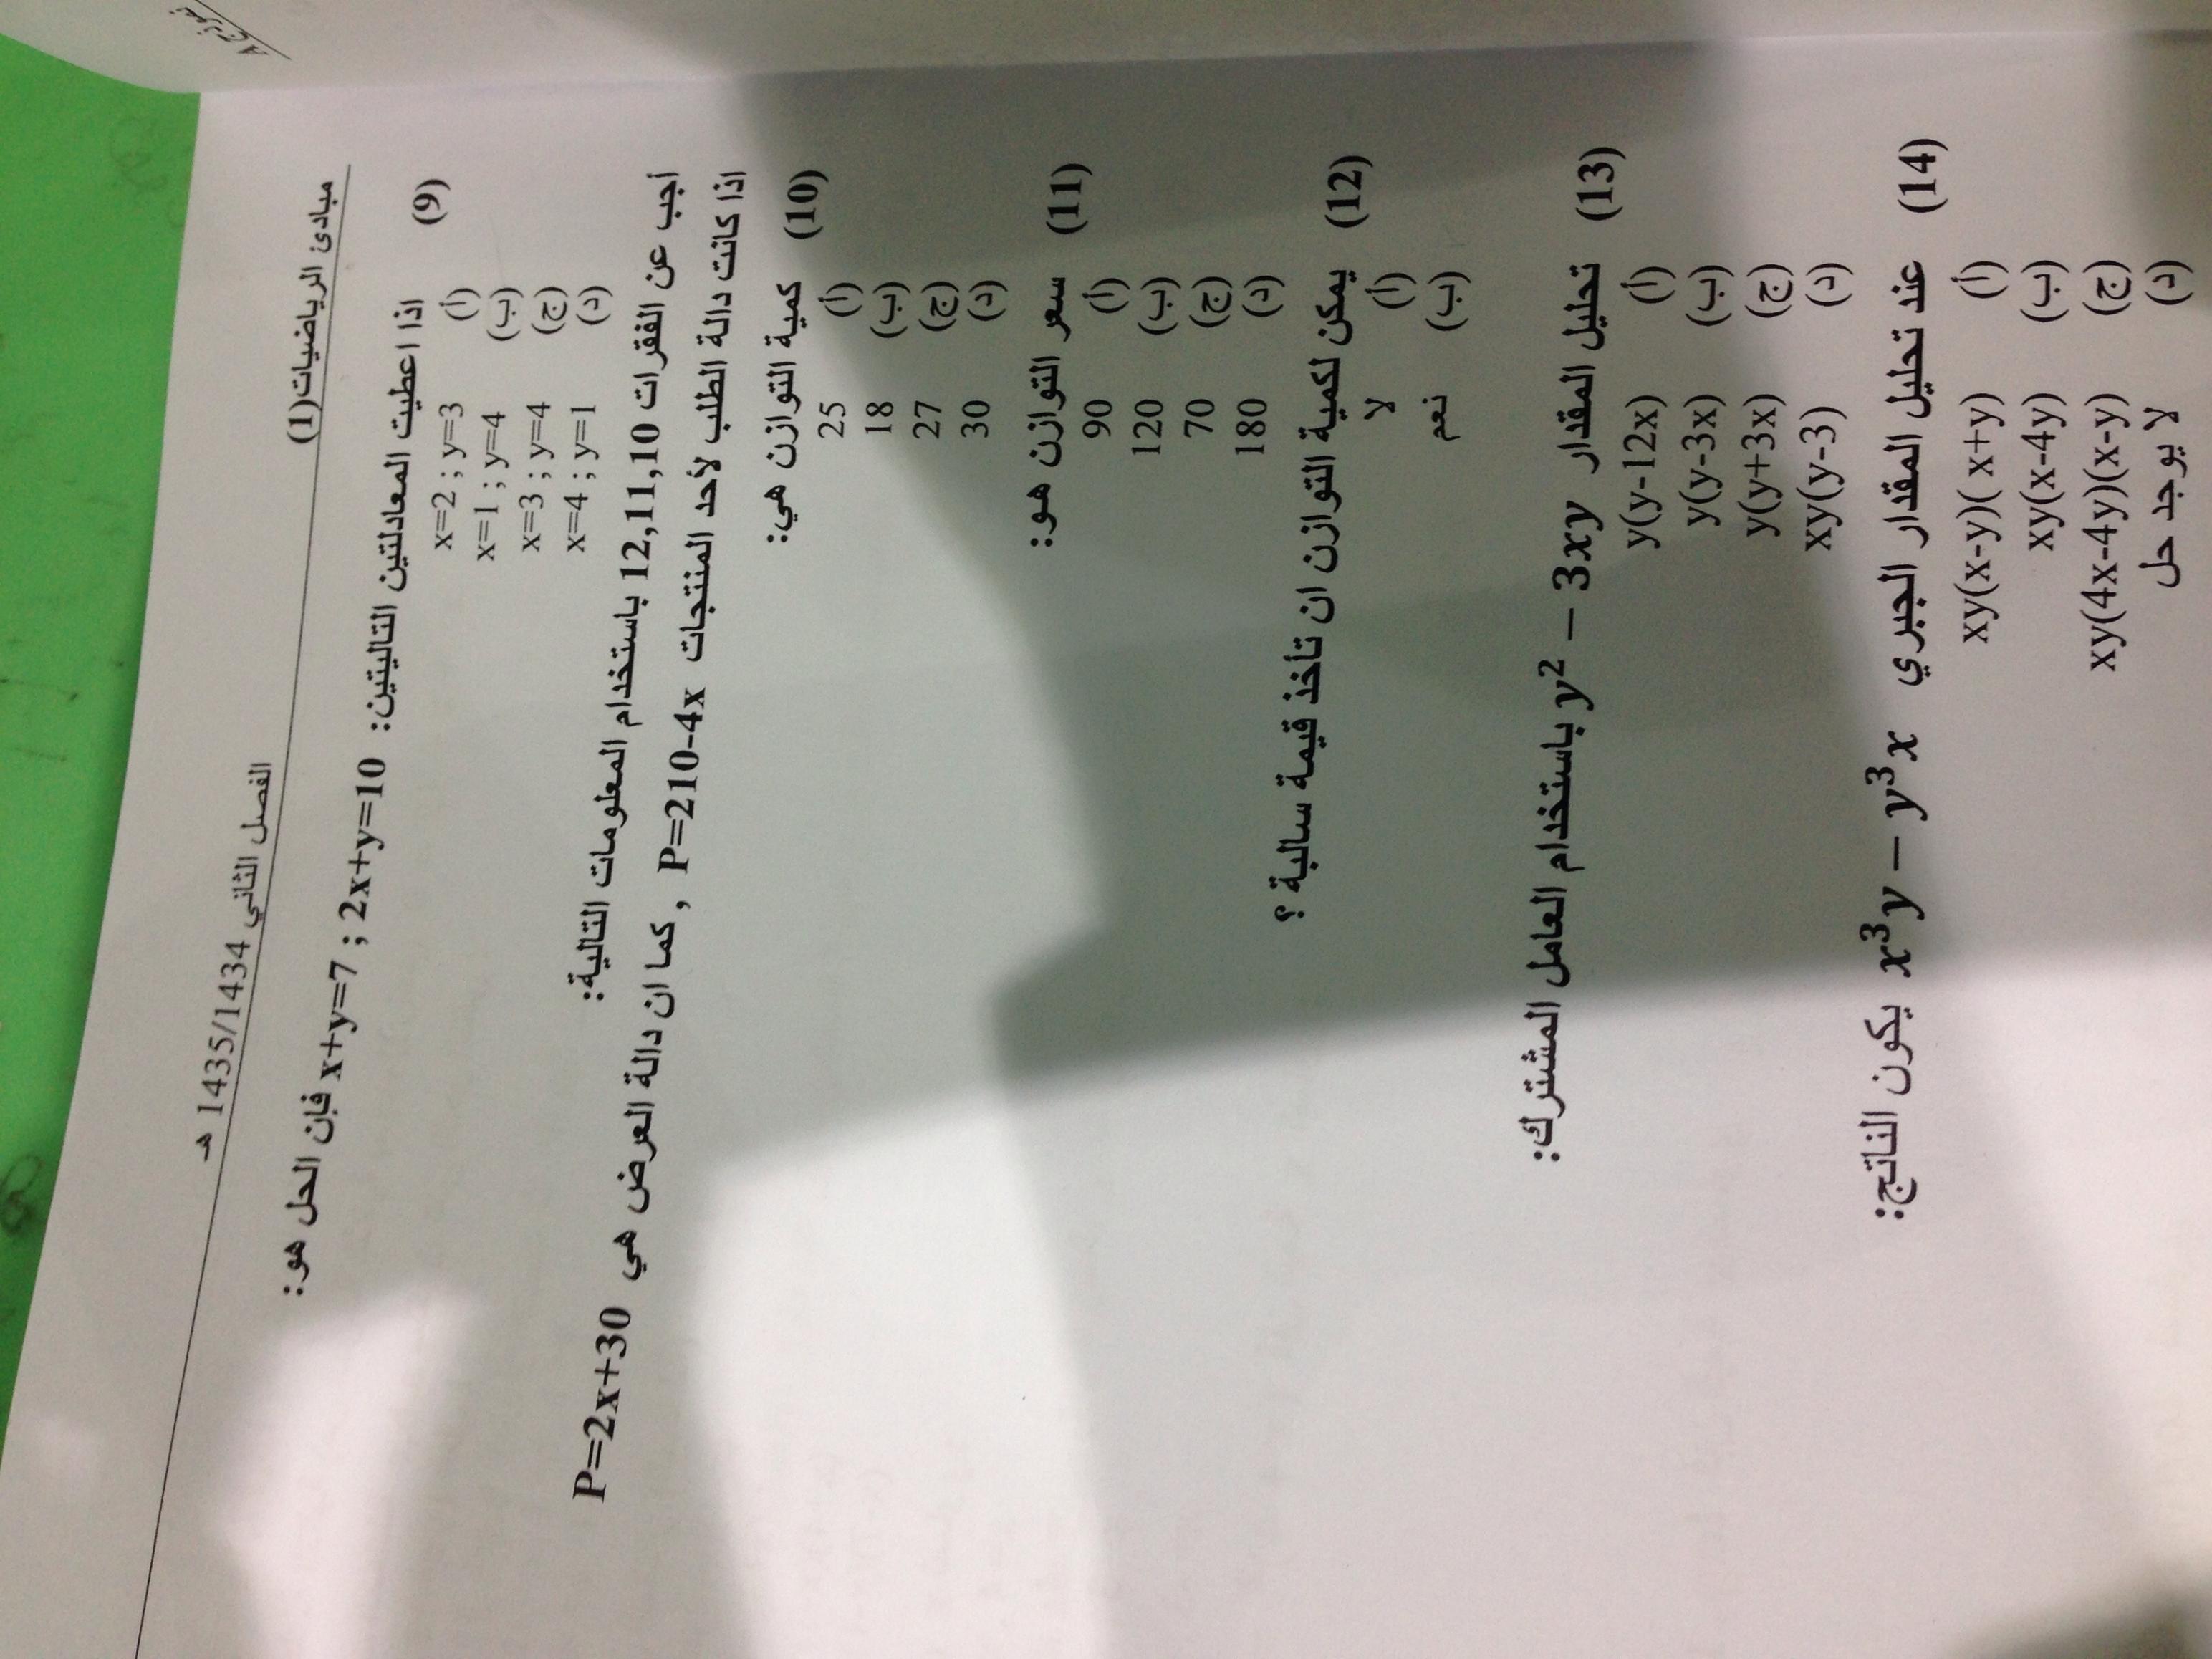 نموذج A
مبادئ الرياضيات(1) الفصل الثاني 1435/1434 هـ
(9) اذا اعطيت المعادلتين التاليتين: x+y=7 ; 2x+y=10 فإن الحل هو:
(أ) x=2 ; y=3
(ب) x=1 ; y=4
(ج) x=3 ; y=4
(د) x=4 ; y=1
أجب عن الفقرات 12,11,10 باستخدام المعلومات التالية:
اذا كانت دالة الطلب لأحد المنتجات P=210-4x , كما ان دالة العرض هي P=2x+30
(10) كمية التوازن هي:
(أ) 25
(ب) 18
(ج) 27
(د) 30
(11) سعر التوازن هو:
(أ) 90
(ب) 120
(ج) 70
(د) 180
(12) يمكن لكمية التوازن ان تأخذ قيمة سالبة ؟
(أ) لا
(ب) نعم
(13) تحليل المقدار y² − 3xy باستخدام العامل المشترك:
(أ) y(y-12x)
(ب) y(y-3x)
(ج) y(y+3x)
(د) xy(y-3)
(14) عند تحليل المقدار الجبري x³y − y³x يكون الناتج:
(أ) xy(x-y)( x+y)
(ب) xy(x-4y)
(ج) xy(4x-4y)(x-y)
(د) لا يوجد حل